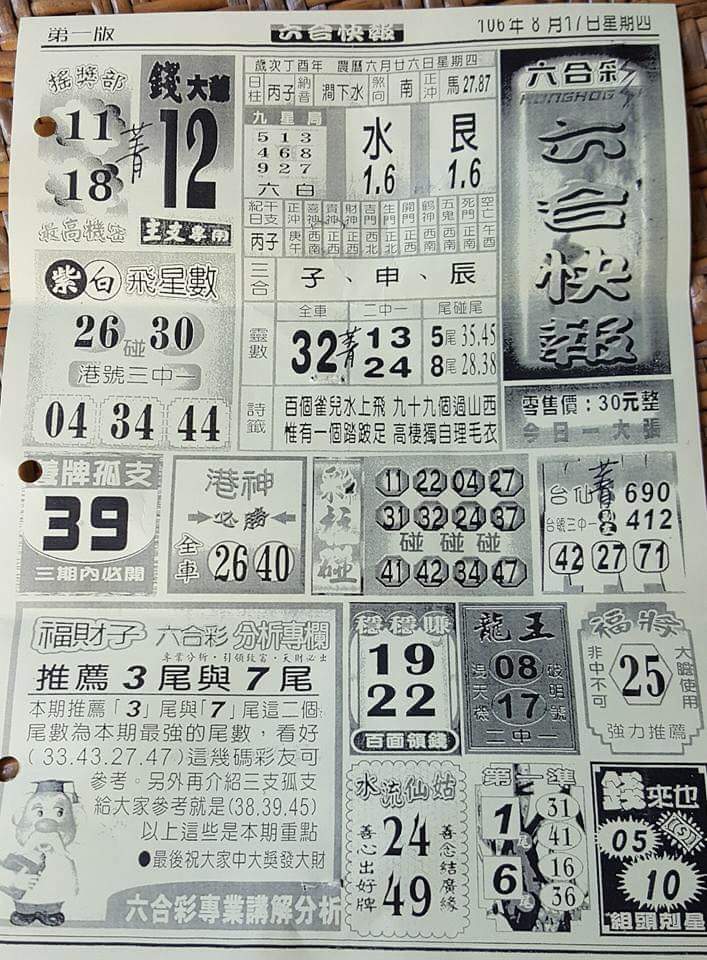 第一版
六合快報
106年8月17日星期四
搖獎部
11
18
最高機密
錢大爺
12
菁
主支專用
歲次丁酉年 農曆六月廿六日星期四
日柱 丙子 納音 澗下水 煞向 南 正沖 馬27.87
九星局
5 1 3
4 6 8
9 2 7
六白
水
1.6
艮
1.6
紀日 干支 正沖 喜神 貴神 財神 吉門 生門 開門 鶴神 五鬼 死門 空亡
丙子
三合 子、申、辰
全車 二中一 尾碰尾
靈數
32
菁
13
24
5尾 35.45
8尾 28.38
詩籤
百個雀兒水上飛 九十九個過山西
惟有一個踏跛足 高棲獨自理毛衣
六合彩
六合快報
零售價:30元整
今日一大張
紫白飛星數
26 碰 30
港號三中一
04 34 44
舊牌孤支
39
三期內必開
港神
必勝
全車 26 40
彩坛碰
11 22 04 27
31 32 24 37
碰 碰 碰
41 42 34 47
台仙 菁 690
台號三中一 412
42 27 71
福財子 六合彩 分析專欄
專業分析·引領致富·天財必出
推薦 3 尾與 7 尾
本期推薦「3」尾與「7」尾這二個
尾數為本期最強的尾數,看好
(33.43.27.47)這幾碼彩友可
參考。另外再介紹三支孤支
給大家參考就是(38,39,45)
以上這些是本期重點
●最後祝大家中大獎發大財
六合彩專業講解分析
穩穩賺
19
22
百面領錢
龍王
洩天機
08
17
破明號
二中一
福將
非中不可
25
大膽使用
強力推薦
水流仙姑
善心出好牌
24
49
善念結廣緣
第一準
1尾
31
41
6尾
16
36
錢來也
05
10
組頭剋星